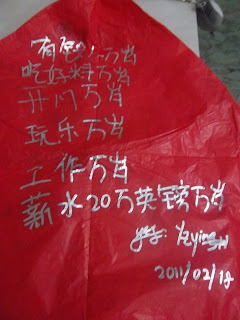 有万岁
吃好料万岁
开门万岁
玩乐万岁
工作万岁
薪水20万英镑万岁
2011/02/18